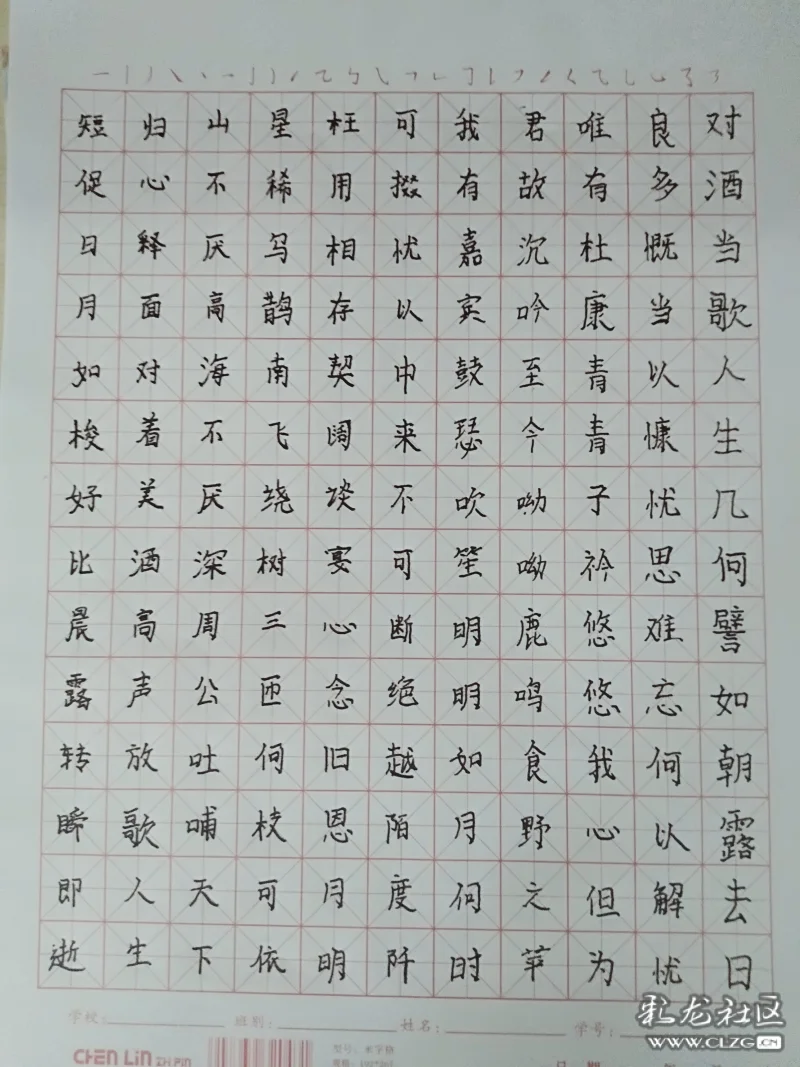 对酒当歌人生几何譬如朝露去日
良多慨当以慷忧思难忘何以解忧
唯有杜康青青子衿悠悠我心但为
君故沉吟至今呦呦鹿鸣食野之苹
我有嘉宾鼓瑟吹笙明明如月何时
可掇忧以中来不可断绝越陌度阡
枉用相存契阔谈宴心念旧恩月明
星稀乌鹊南飞绕树三匝何枝可依
山不厌高海不厌深周公吐哺天下
归心释面对着美酒高声放歌人生
短促日月如梭好比晨露转瞬即逝
学校: 班别: 姓名: 学号:
CHEN LIN ZHI PIN
型号: 米字格
彩龙社区
WWW.CLZG.CN